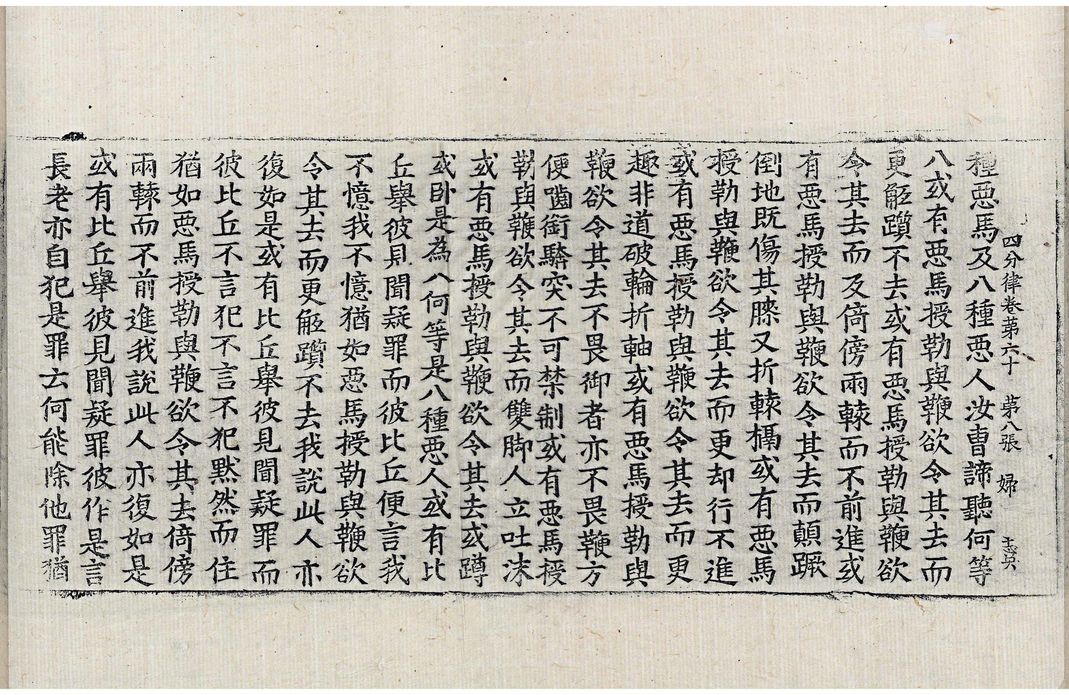 四分律卷第六十　第八張　婦
種惡馬及八種惡人汝曹諦聽何等
八或有惡馬授勒與鞭欲令其去而
更觝躓不去或有惡馬授勒與鞭欲
令其去而反倚傍兩轅而不前進或
有惡馬授勒與鞭欲令其去而顛蹶
倒地既傷其膝又折轅槅或有惡馬
授勒與鞭欲令其去而更却行不進
或有惡馬授勒與鞭欲令其去而更
趣非道破輪折軸或有惡馬授勒與
鞭欲令其去不畏御者亦不畏鞭方
便齧銜驕突不可禁制或有惡馬授
勒與鞭欲令其去而雙脚人立吐沫
或有惡馬授勒與鞭欲令其去或蹲
或卧是為八何等是八種惡人或有比
丘舉彼見聞疑罪而彼比丘便言我
不憶我不憶猶如惡馬授勒與鞭欲
令其去而更觝躓不去我說此人亦
復如是或有比丘舉彼見聞疑罪而
彼比丘不言犯不言不犯黙然而住
猶如惡馬授勒與鞭欲令其去倚傍
兩轅而不前進我說此人亦復如是
或有比丘舉彼見聞疑罪彼作是言
長老亦自犯是罪云何能除他罪猶